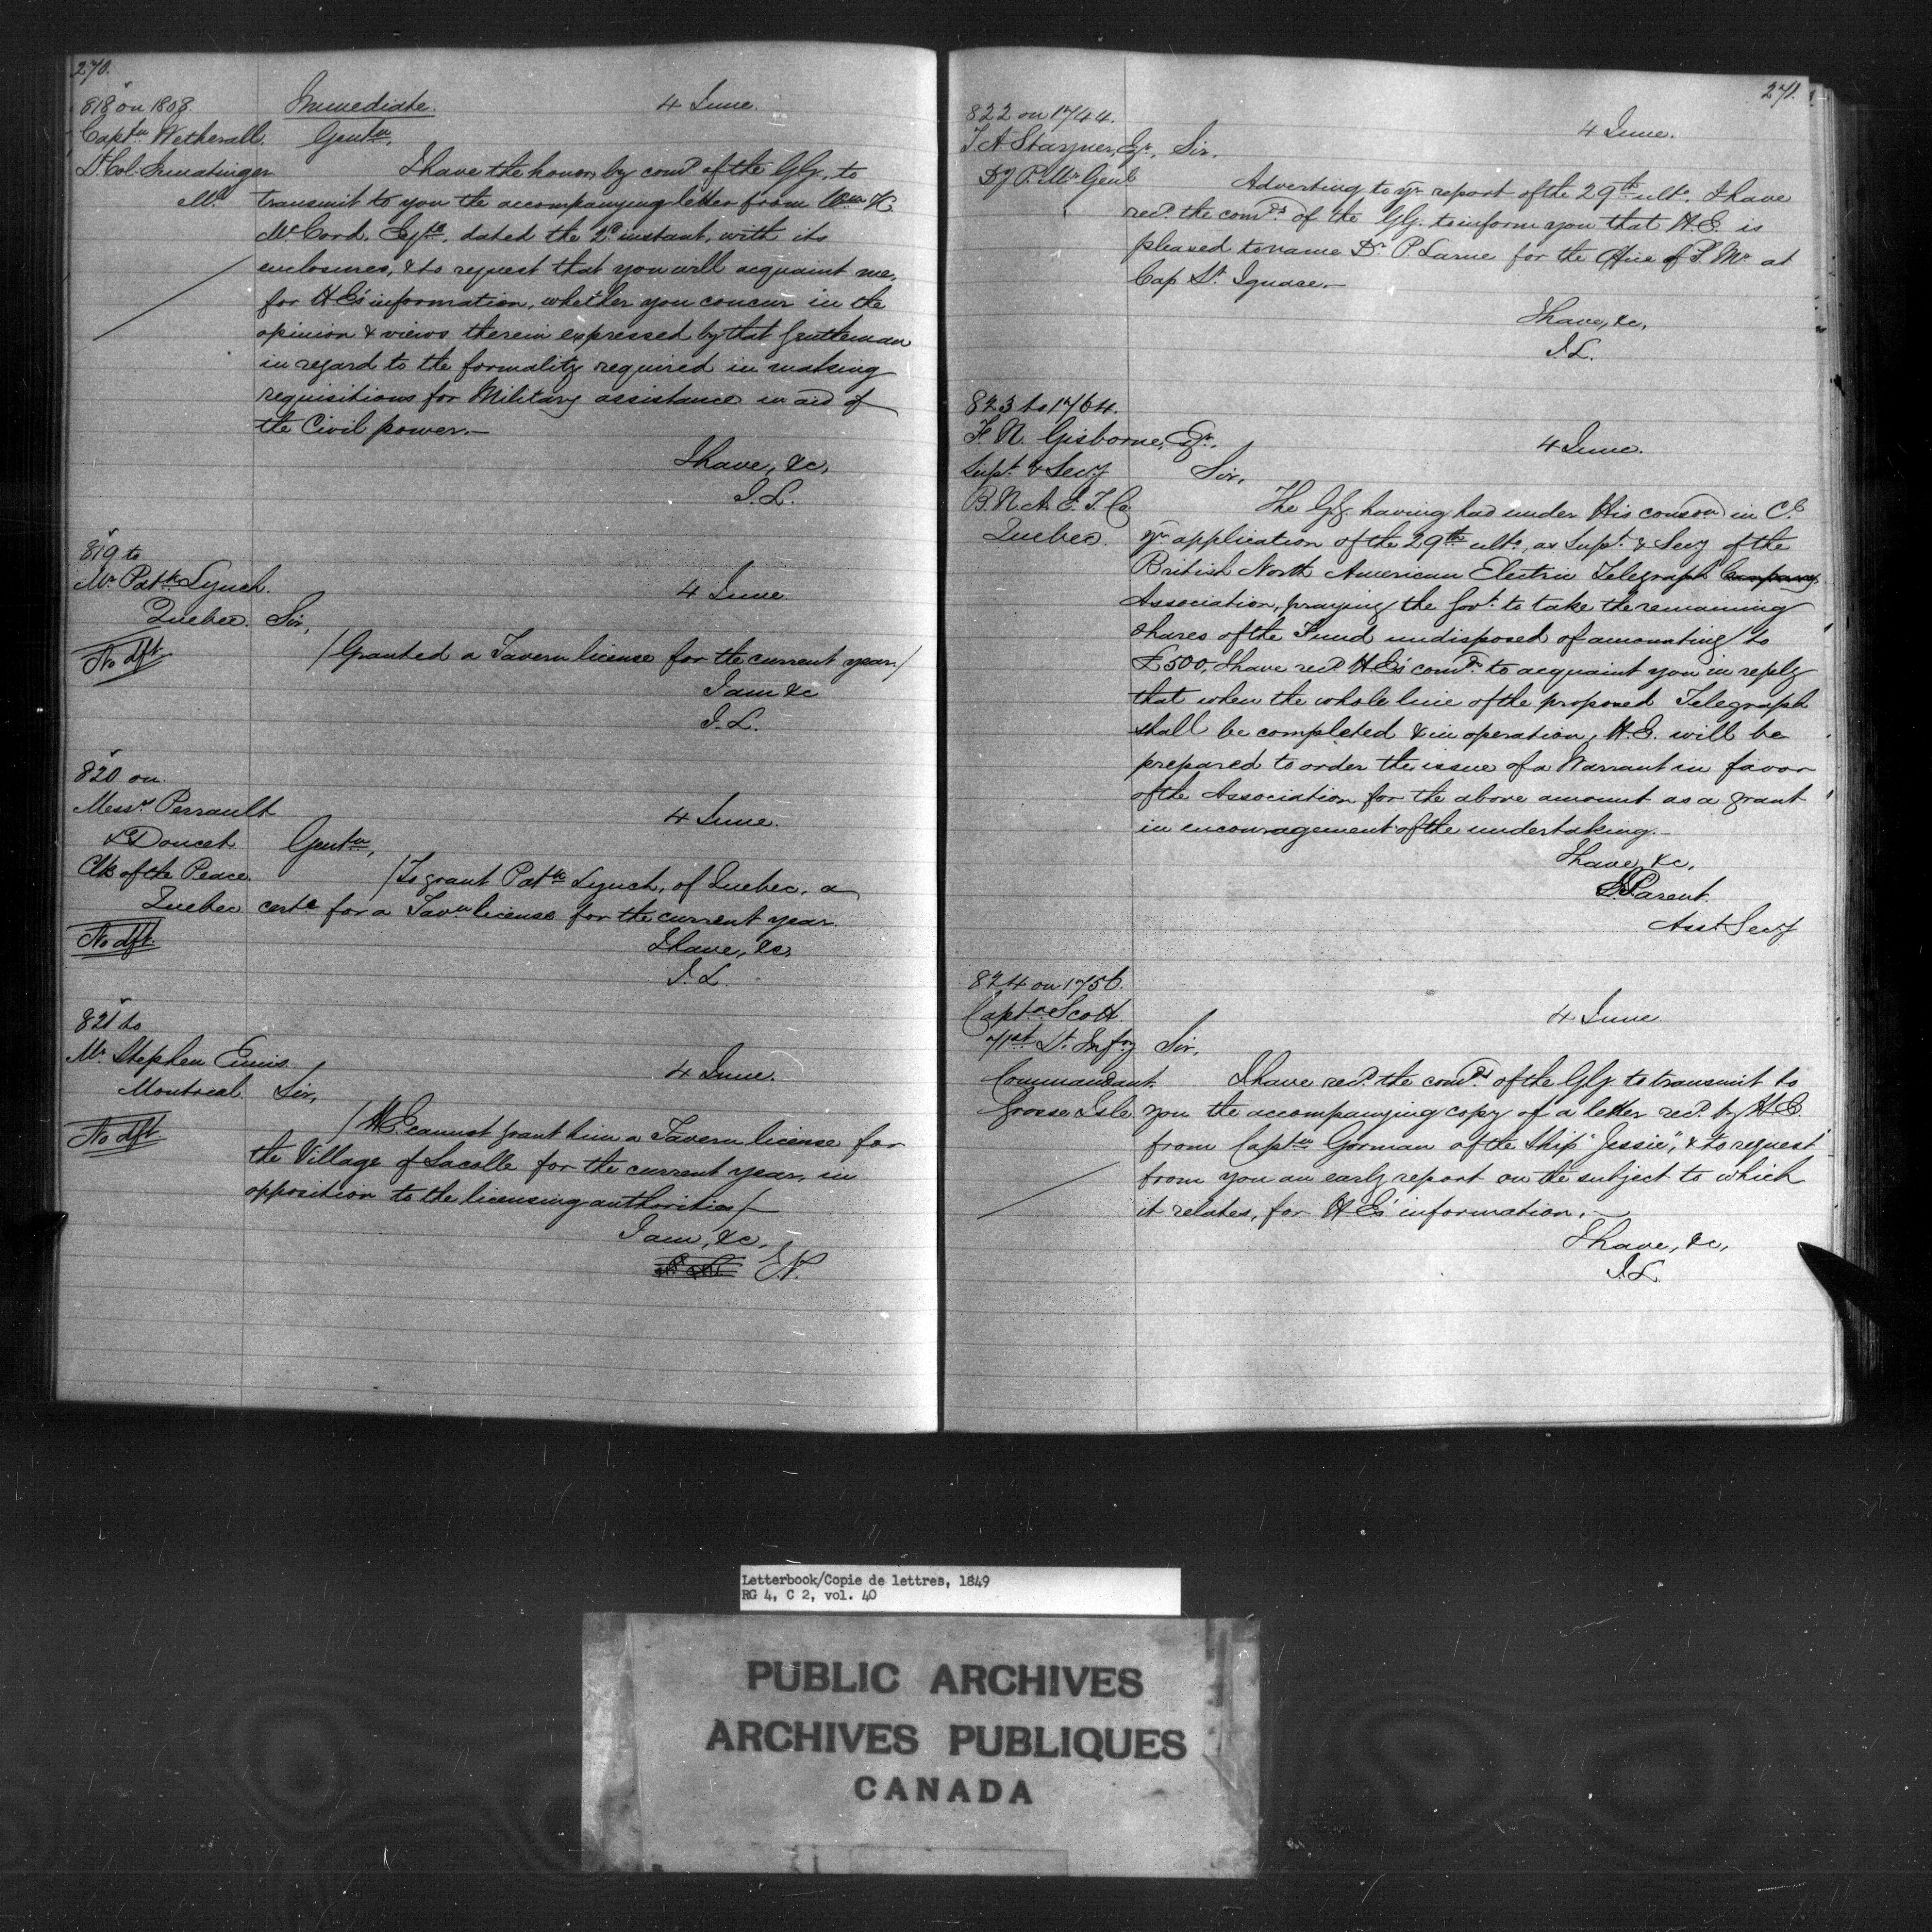 270.
818 on 1808.
Immediate.
4 June.
Captn Wetherall.
Gentn,
Lt Col. Ermatinger
Ml
I have the honor, by comd of the GG, to
transmit to you the accompanying letter from Wm K.
McCord, Esqre, dated the 2d instant, with its
enclosures, & to request that you will acquaint me,
for HE's information, whether you concur in the
opinion & views therein expressed by that Gentleman
in regard to the formality required in making
requisitions for Military assistance in aid of
the Civil power.—
I have, &c,
J.L.
819 to
Mr Patk Lynch.
4 June.
Quebec.
Sir,
No dft.
/Granted a Tavern license for the current year./
I am &c
J.L.
820 on
Messrs Perrault
& Doucet
4 June.
Gentn,
Clks of the Peace
Quebec
/To grant Patk Lynch, of Quebec, a
certe for a Tavn license for the current year.
No dft.
I have, &c,
J.L.
821 to
Mr Stephen Ennis
4 June.
Montreal
Sir,
No dft
/H.E. cannot grant him a Tavern license for
the Village of Lacolle for the current year, in
opposition to the licensing authorities/—
I am, &c,
E.P.
271.
822 on 1744.
4 June.
T A Stayner, Esqr,
Sir,
Dy P. Mr Genl
Adverting to yr report of the 29th ulto, I have
recd the comds of the GG. to inform you that H.E. is
pleased to name Dr P. Larue for the Office of P. Mr at
Cap St Ignace.—
I have, &c,
J.L.
823 to 1764.
F. N. Gisborne, Esqr,
4 June.
Supt & Secy
Sir,
B. N. A. E. T. Co
Quebec.
The GG. having had under His consdn in C.l
yr application of the 29th ulto, as Supt & Secy of the
British North American Electric Telegraph Company
Association, praying the Govt to take the remaining
shares of the Fund undisposed of amounting to
£500, I have recd HE's comds to acquaint you in reply
that when the whole line of the proposed Telegraph
shall be completed & in operation, H.E. will be
prepared to order the issue of a Warrant in favor
of the Association for the above amount as a grant
in encouragement of the undertaking.—
I have, &c,
E. Parent.
Asst Secy
824 on 1756.
Captn Scott
4 June.
71st Lt. Infy
Sir,
Commandant
Grosse Isle
I have recd the comds of the GG to transmit to
you the accompanying copy of a letter recd by H.E.
from Captn Gorman of the Ship "Jessie", & to request
from you an early report on the subject to which
it relates, for HE's information.—
I have, &c,
J.L.
Letterbook/Copie de lettres, 1849
RG 4, C 2, vol. 40
PUBLIC ARCHIVES
ARCHIVES PUBLIQUES
CANADA